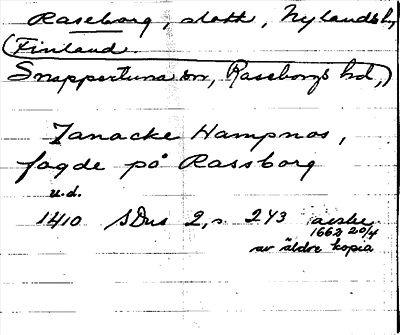 Raseborg, slott, Nylands l.,
(Finland.
Snappertuna sn, Raseborgs hd,)
Tanacke Hampnos,
fogde på Rassborg
u.d.
1410 SDns 2, s. 243
1662 20/4
av äldre kopia